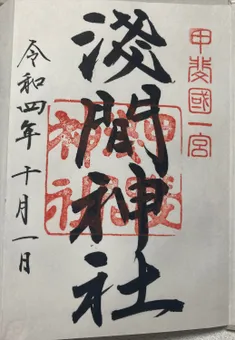 甲斐國一宮
淺間神社
甲斐
神社
令和四年十月一日